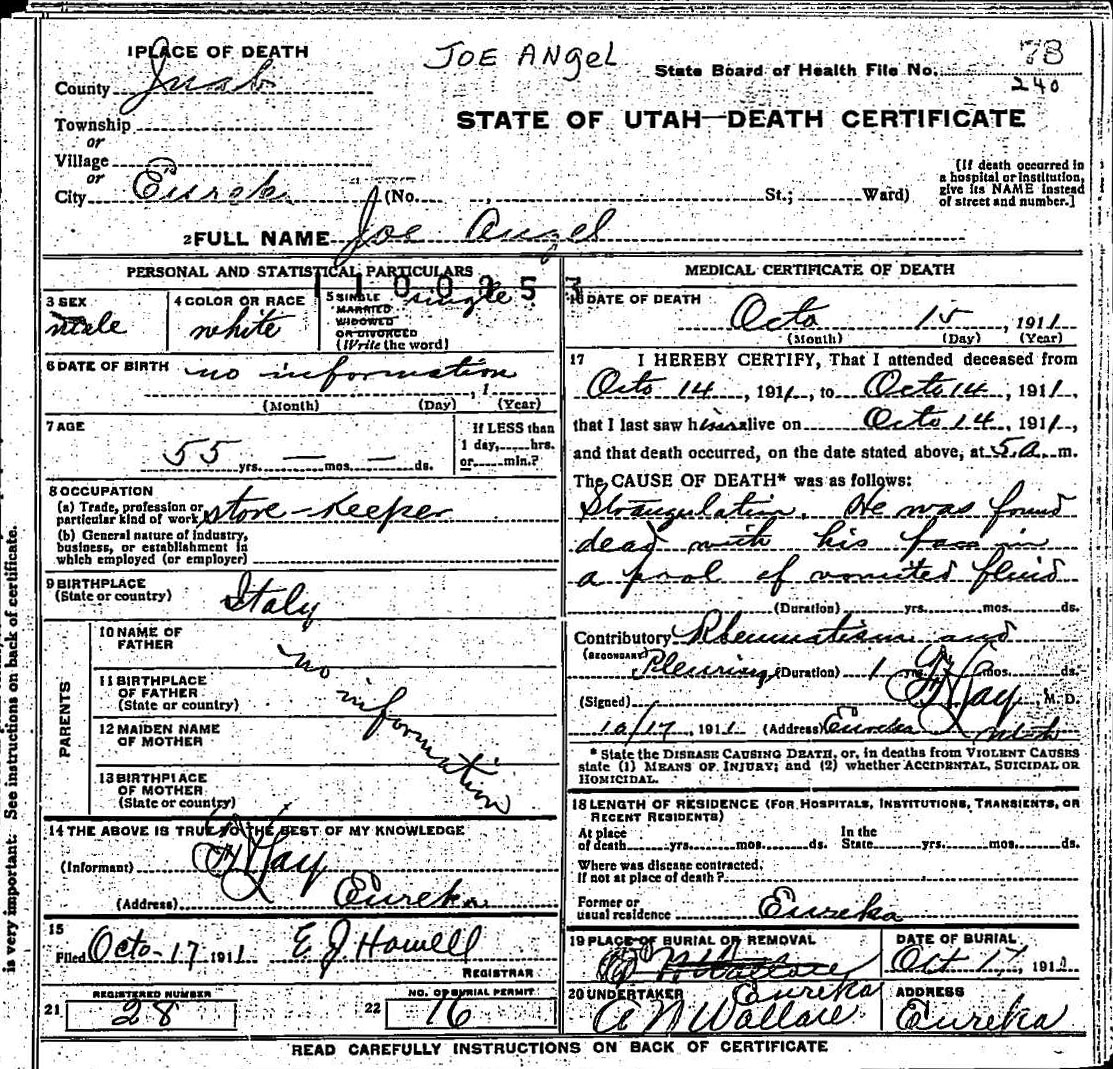 JOE ANgeL
1 PLACE OF DEATH
State Board of Health File No. 78
240
County Juab
STATE OF UTAH—DEATH CERTIFICATE
Township
or
Village
or
City Eureka (No. , St.; Ward)
[If death occurred in
a hospital or institution,
give its NAME instead
of street and number.]
2 FULL NAME Joe Angel
PERSONAL AND STATISTICAL PARTICULARS
3 SEX
male
4 COLOR OR RACE
white
5 SINGLE
MARRIED
WIDOWED
OR DIVORCED
(Write the word)
single
6 DATE OF BIRTH no information
, 1
(Month) (Day) (Year)
7 AGE
55 yrs. — mos. — ds.
If LESS than
1 day, hrs.
or min.?
8 OCCUPATION
(a) Trade, profession or
particular kind of work store-keeper
(b) General nature of industry,
business, or establishment in
which employed (or employer)
9 BIRTHPLACE
(State or country) Italy
PARENTS
10 NAME OF
FATHER
11 BIRTHPLACE
OF FATHER
(State or country)
12 MAIDEN NAME
OF MOTHER
13 BIRTHPLACE
OF MOTHER
(State or country)
no information
14 THE ABOVE IS TRUE TO THE BEST OF MY KNOWLEDGE
(Informant)
(Address) Eureka
15
Filed Octo-17 1911 E. J. Howell
REGISTRAR
21 REGISTERED NUMBER
28
22 NO. OF BURIAL PERMIT
16
MEDICAL CERTIFICATE OF DEATH
16 DATE OF DEATH
Octo 15, 1911
(Month) (Day) (Year)
17 I HEREBY CERTIFY, That I attended deceased from
Octo 14, 1911, to Octo 14, 1911,
that I last saw him alive on Octo 14, 1911,
and that death occurred, on the date stated above, at 5 a. m.
The CAUSE OF DEATH* was as follows:
Strangulation. He was found
dead with his face in
a pool of vomited fluid
(Duration) yrs. mos. ds.
Contributory Rheumatism and
(SECONDARY) Pleurisy (Duration) 1 yrs. mos. ds.
(Signed) M. D.
10/17, 1911 (Address) Eureka Utah
* State the DISEASE CAUSING DEATH, or, in deaths from VIOLENT CAUSES
state (1) MEANS OF INJURY; and (2) whether ACCIDENTAL, SUICIDAL OR
HOMICIDAL.
18 LENGTH OF RESIDENCE (FOR HOSPITALS, INSTITUTIONS, TRANSIENTS, OR
RECENT RESIDENTS)
At place
of death yrs. mos. ds. In the
State yrs. mos. ds.
Where was disease contracted.
If not at place of death?
Former or
usual residence Eureka
19 PLACE OF BURIAL OR REMOVAL
Eureka
DATE OF BURIAL
Oct 17, 1911
20 UNDERTAKER
A N Wallace
ADDRESS
Eureka
READ CAREFULLY INSTRUCTIONS ON BACK OF CERTIFICATE
is very important. See instructions on back of certificate.